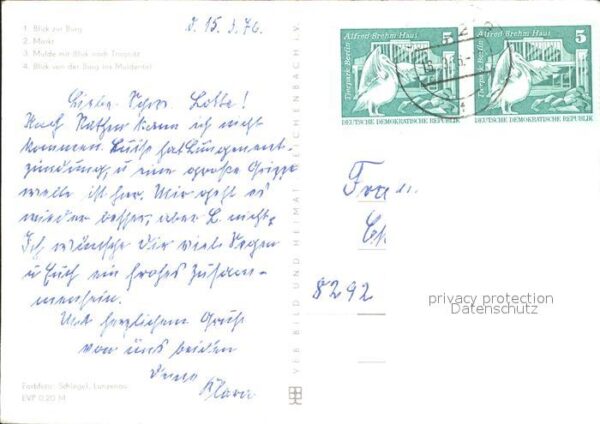 1. Blick zur Burg
2. Markt
3. Mulde mit Blick nach Thierbaum
4. Blick von der Burg ins Muldental
d. 15. 3. 76.
Liebe Schw. Lotte!
Nach Rathen kann ich nicht
kommen. Luise hat Lungenent-
zündung, u eine große Grippe
welle ist hier. Mir geht es
wieder besser, aber L. nicht.
Ich wünsche Dir viel Segen
u Euch ein frohes Zusam-
mensein.
Mit herzlichem Gruß
von uns beiden
Deine
Klara
Farbfoto: Schlegel, Lunzenau
EVP 0.20 M
VEB BILD UND HEIMAT REICHENBACH i. V.
Alfred-Brehm-Haus
Tierpark Berlin
5
DEUTSCHE DEMOKRATISCHE REPUBLIK
Alfred-Brehm-Haus
Tierpark Berlin
5
DEUTSCHE DEMOKRATISCHE REPUBLIK
Frau
8292
privacy protection
Datenschutz